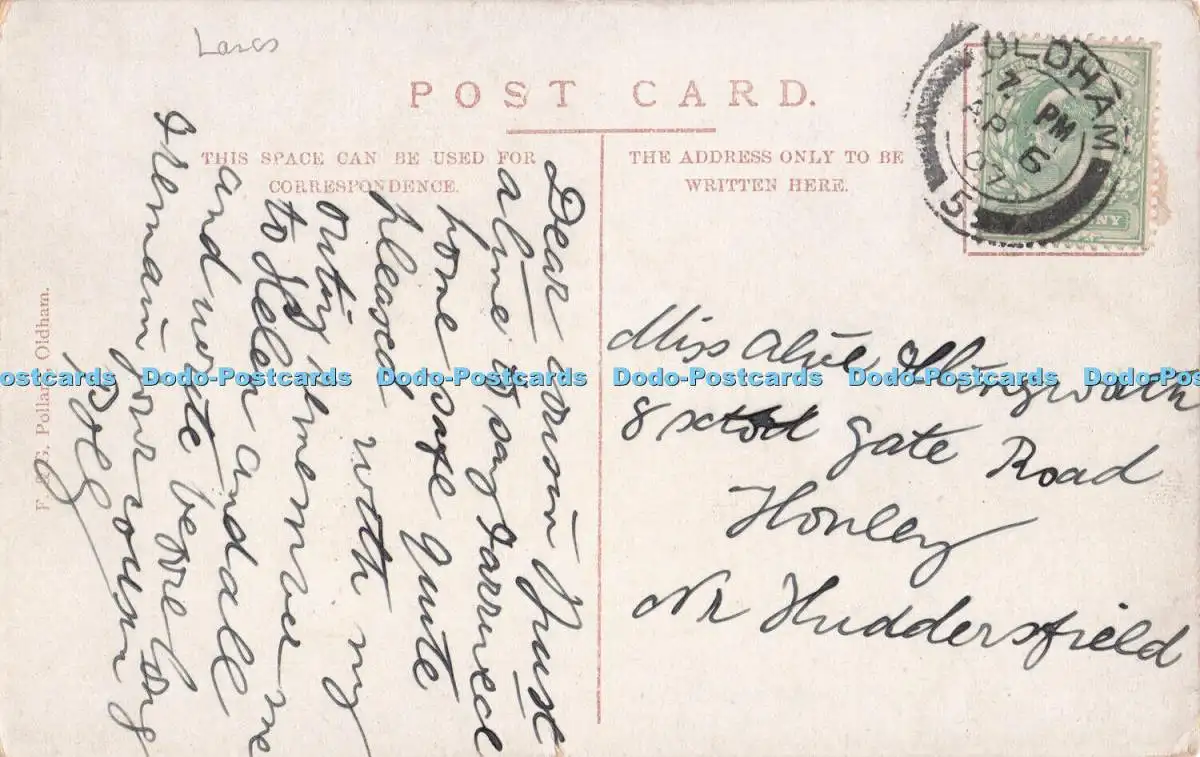 Lancs
POST CARD.
THIS SPACE CAN BE USED FOR
CORRESPONDENCE.
THE ADDRESS ONLY TO BE
WRITTEN HERE.
OLDHAM
7 PM
AP 6
07
5
Dear cousin Just
a line to say I arrived
home safe quite
pleased with my
outing remember me
to and all
and write before long
I Remain your cousin
Polly
Miss
8 gate Road
Honley
Nr Huddersfield
F. & G. Pollard Oldham.
Dodo-Postcards Dodo-Postcards Dodo-Postcards Dodo-Postcards Dodo-Postcards